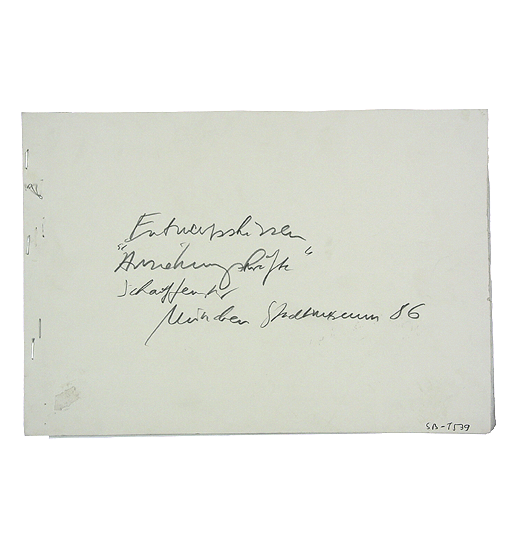 Entwurfsskizzen
"Anziehungskräfte"
München Stadtmuseum 86
SB-T539